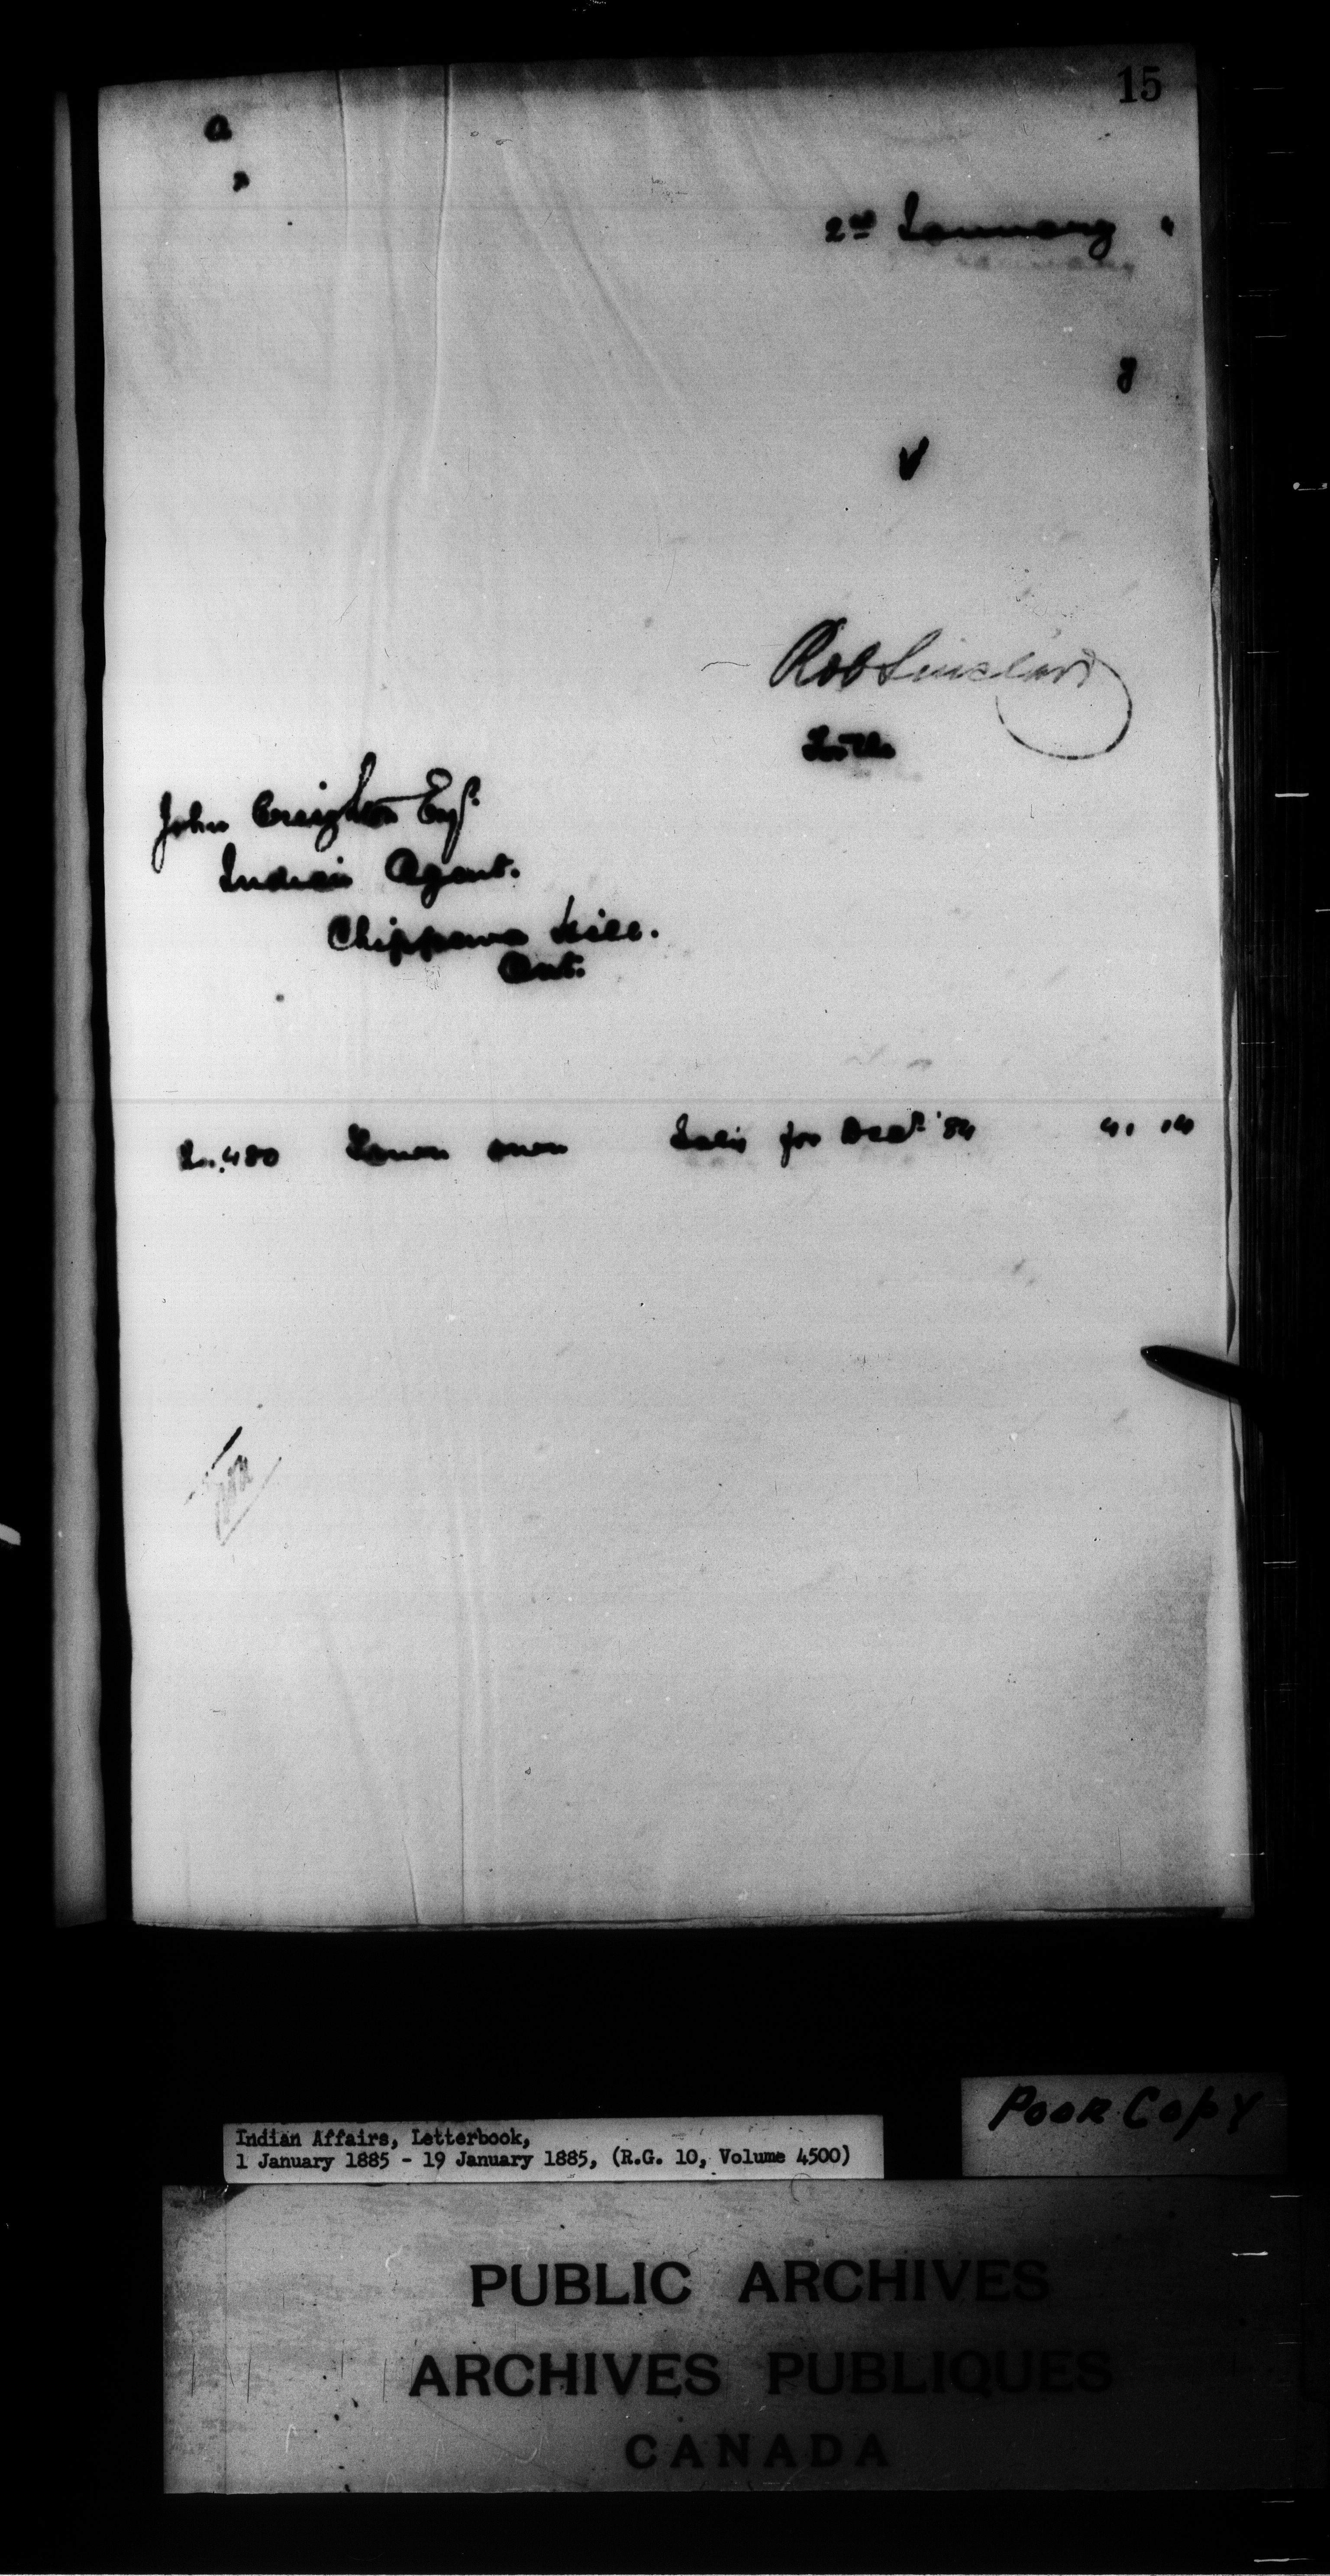 15
a
2nd January "
8
Rob Sinclair
John Creighton Esq.
Indian Agent.
Chippewa Hill.
Ont.
480 for Decr '84
Indian Affairs, Letterbook,
1 January 1885 - 19 January 1885, (R.G. 10, Volume 4500)
POOR COPY
PUBLIC ARCHIVES
ARCHIVES PUBLIQUES
CANADA